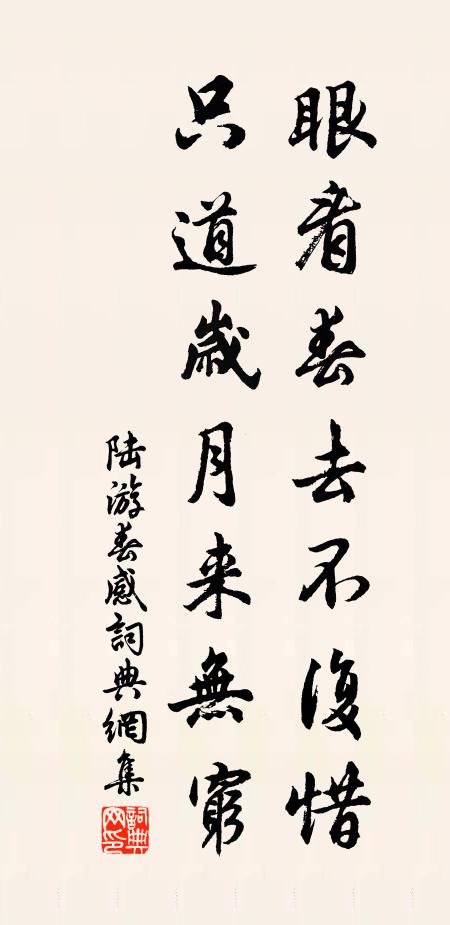 眼看春去不復惜
只道歲月来無窮
陆游春感詞典網集
詞典
网印